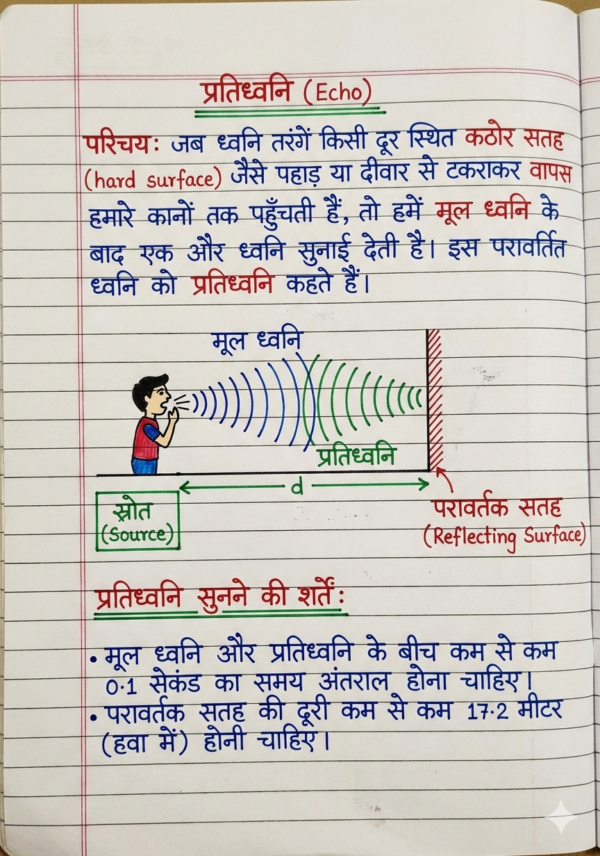 प्रतिध्वनि (Echo)
परिचय: जब ध्वनि तरंगें किसी दूर स्थित कठोर सतह
(hard surface) जैसे पहाड़ या दीवार से टकराकर वापस
हमारे कानों तक पहुँचती हैं, तो हमें मूल ध्वनि के
बाद एक और ध्वनि सुनाई देती है। इस परावर्तित
ध्वनि को प्रतिध्वनि कहते हैं।
मूल ध्वनि
प्रतिध्वनि
d
स्रोत
(Source)
परावर्तक सतह
(Reflecting Surface)
प्रतिध्वनि सुनने की शर्तें:
• मूल ध्वनि और प्रतिध्वनि के बीच कम से कम
0.1 सेकंड का समय अंतराल होना चाहिए।
• परावर्तक सतह की दूरी कम से कम 17.2 मीटर
(हवा में) होनी चाहिए।